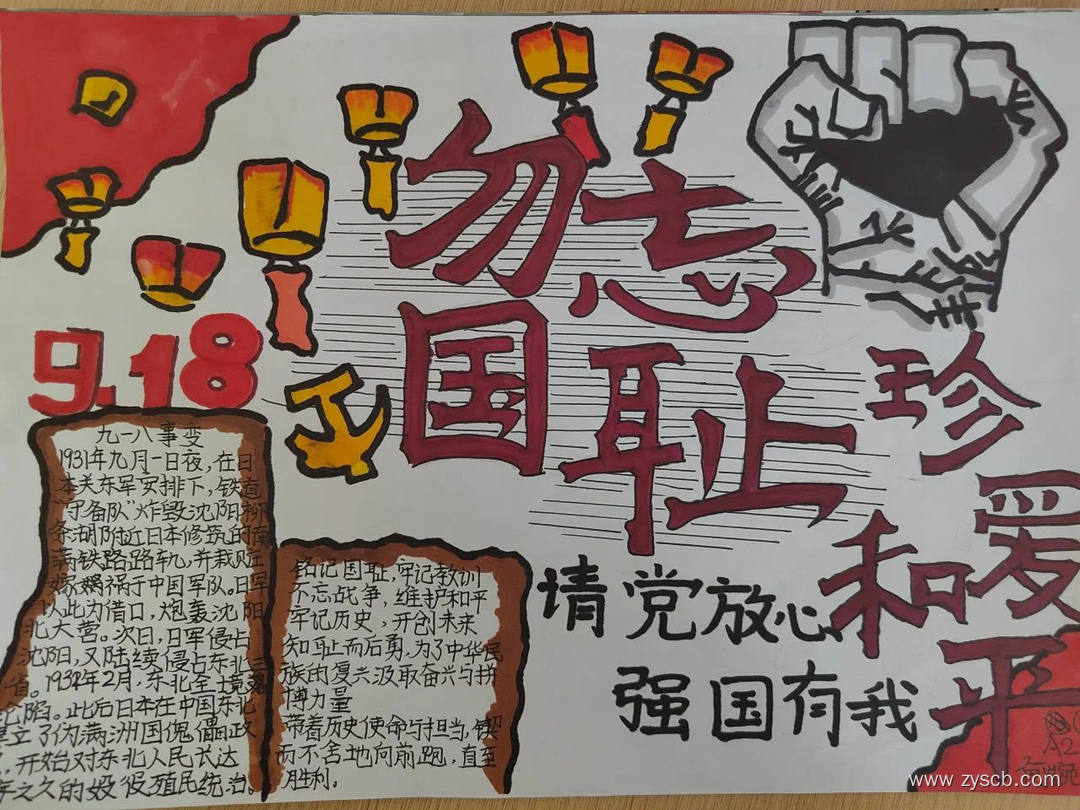 勿忘
国耻
珍爱
和平
9.18
九一八事变
1931年九月一日夜,在日
本关东军安排下,铁道
“守备队”炸毁沈阳柳
条湖附近日本修筑的南
满铁路路轨,并栽赃
嫁祸于中国军队。日军
以此为借口,炮轰沈阳
北大营。次日,日军侵占
沈阳,又陆续侵占东北三
省。1932年2月,东北全境
沦陷。此后日本在中国东北
建立了伪满洲国傀儡政
,开始对东北人民长达
年之久的奴役殖民统治。
铭记国耻,牢记教训
不忘战争,维护和平
牢记历史,开创未来
知耻而后勇,为了中华民
族的复兴汲取奋兴与拼
搏力量
带着历史使命与担当,锲
而不舍地向前跑,直至
月胜利。
请党放心
强国有我
www.zyscb.com